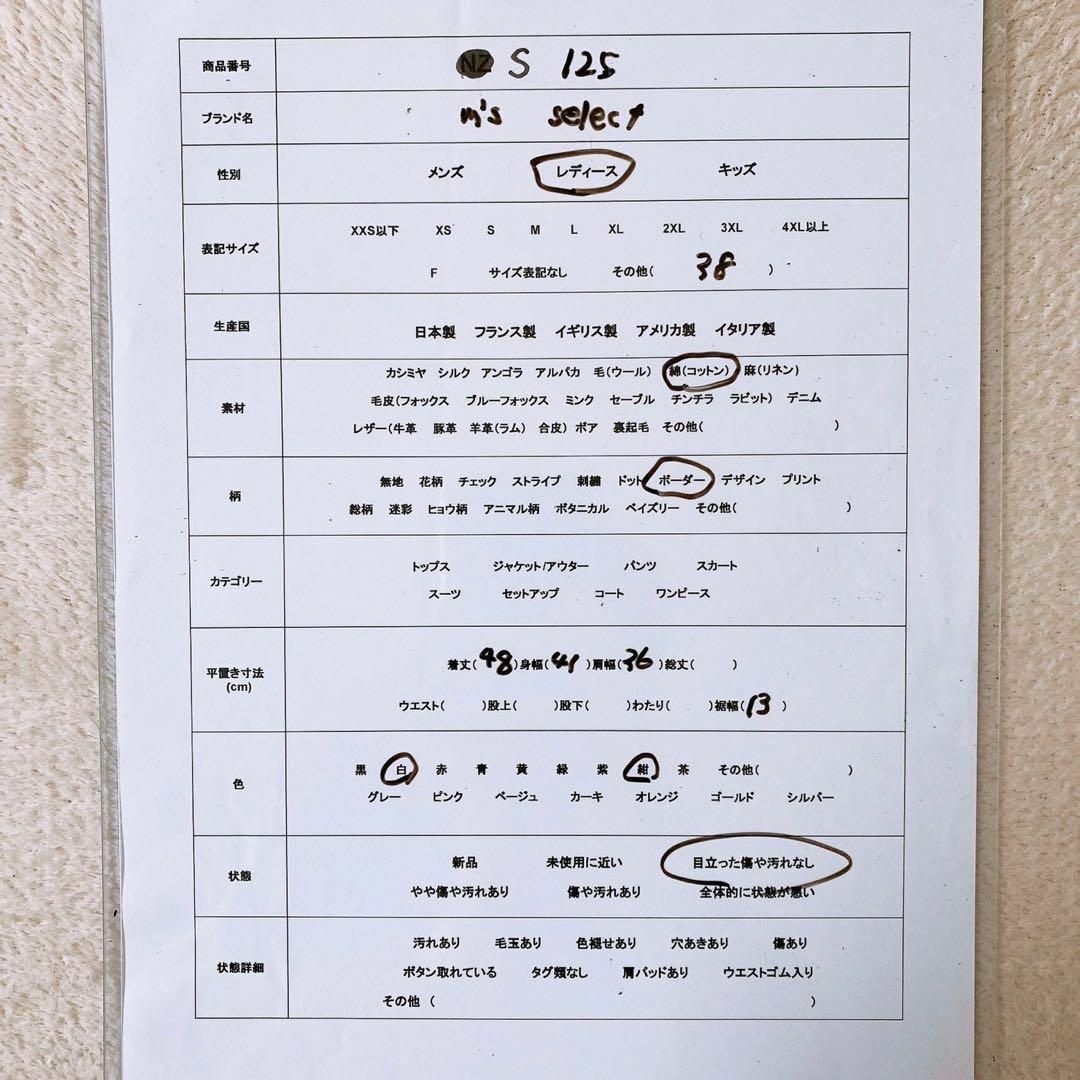 商品番号 NZ S 125
ブランド名 m's select
性別 メンズ レディース キッズ
XXS以下 XS S M L XL 2XL 3XL 4XL以上
表記サイズ
F サイズ表記なし その他( 38 )
生産国 日本製 フランス製 イギリス製 アメリカ製 イタリア製
カシミヤ シルク アンゴラ アルパカ 毛(ウール) 綿(コットン) 麻(リネン)
素材 毛皮(フォックス ブルーフォックス ミンク セーブル チンチラ ラビット) デニム
レザー(牛革 豚革 羊革(ラム) 合皮) ボア 裏起毛 その他( )
無地 花柄 チェック ストライプ 刺繍 ドット ボーダー デザイン プリント
柄
総柄 迷彩 ヒョウ柄 アニマル柄 ボタニカル ペイズリー その他( )
トップス ジャケット/アウター パンツ スカート
カテゴリー
スーツ セットアップ コート ワンピース
着丈(48)身幅(41)肩幅(36)総丈( )
平置き寸法
(cm)
ウエスト( )股上( )股下( )わたり( )裾幅(13)
黒 白 赤 青 黄 緑 紫 紺 茶 その他( )
色
グレー ピンク ベージュ カーキ オレンジ ゴールド シルバー
新品 未使用に近い 目立った傷や汚れなし
状態
やや傷や汚れあり 傷や汚れあり 全体的に状態が悪い
汚れあり 毛玉あり 色褪せあり 穴あきあり 傷あり
状態詳細 ボタン取れている タグ類なし 肩パッドあり ウエストゴム入り
その他 ( )